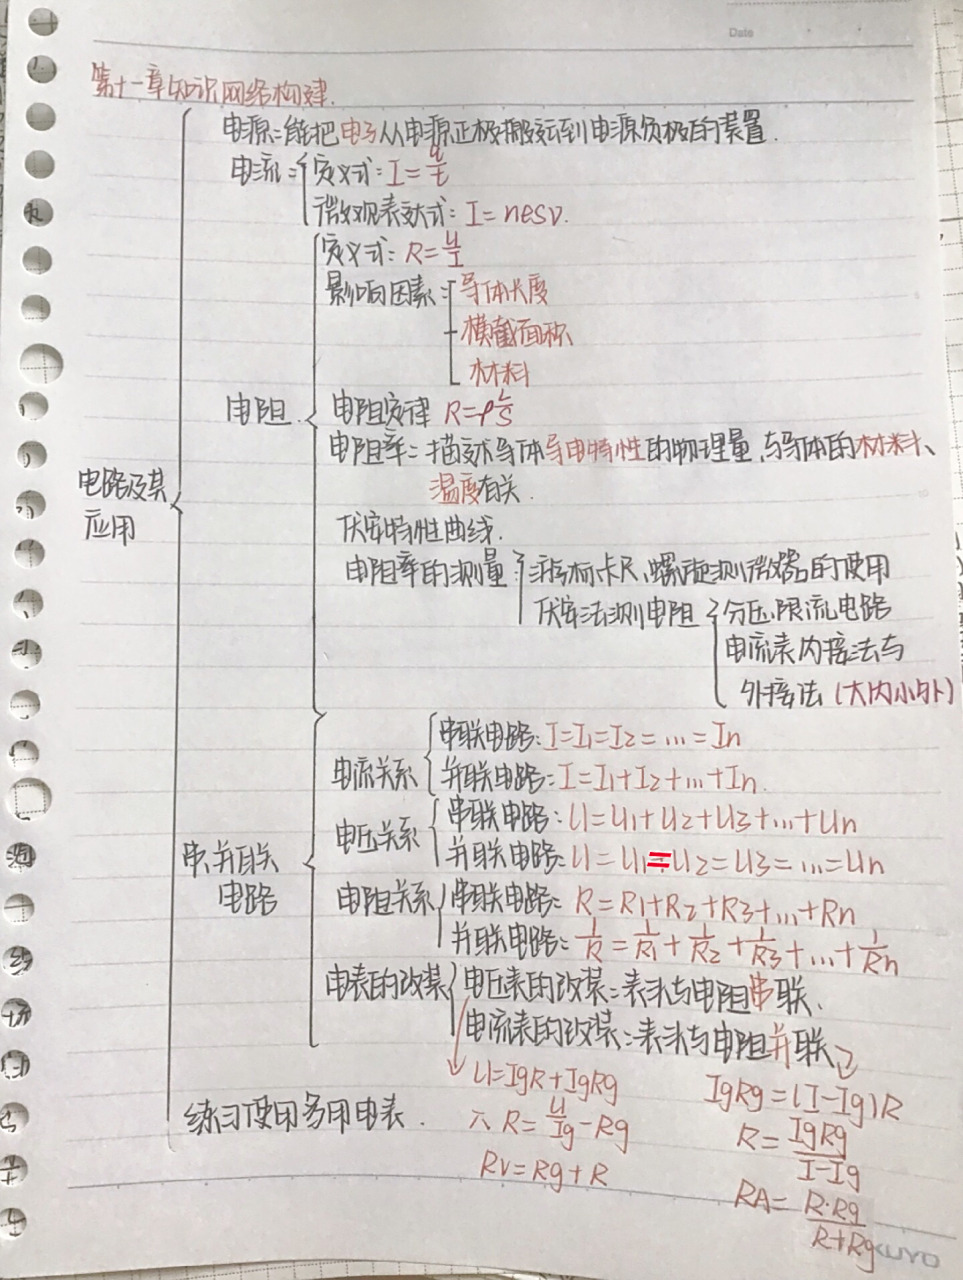 Date
第十一章知识网络构建.
电源:能把电子从电源正极搬运到电源负极的装置.
电流: 定义式: I=q/t
微观表达式: I=nesv.
定义式: R=U/I
影响因素: 导体长度
横截面积
材料
电阻. 电阻定律 R=ρL/S
电阻率:描述导体导电特性的物理量,与导体的材料、
温度有关.
电路及其
应用
伏安特性曲线.
电阻率的测量 游标卡尺、螺旋测微器的使用
伏安法测电阻 分压.限流电路
电流表内接法与
外接法(大内小外)
串联电路: I=I1=I2=...=In
电流关系
并联电路: I=I1+I2+...+In.
串联电路: U=U1+U2+U3+...+Un
电压关系
并联电路: U=U1=U2=U3=...=Un
串.并联
电路
电阻关系 串联电路: R=R1+R2+R3+...+Rn
并联电路: 1/R=1/R1+1/R2+1/R3+...+1/Rn
电表的改装 电压表的改装:表头与电阻串联.
电流表的改装:表头与电阻并联
U=IgR+IgRg
IgRg=(I-Ig)R
练习使用多用电表.
∴ R=U/Ig-Rg
R=IgRg/I-Ig
RV=Rg+R
RA=R·Rg/R+Rg
KUYO